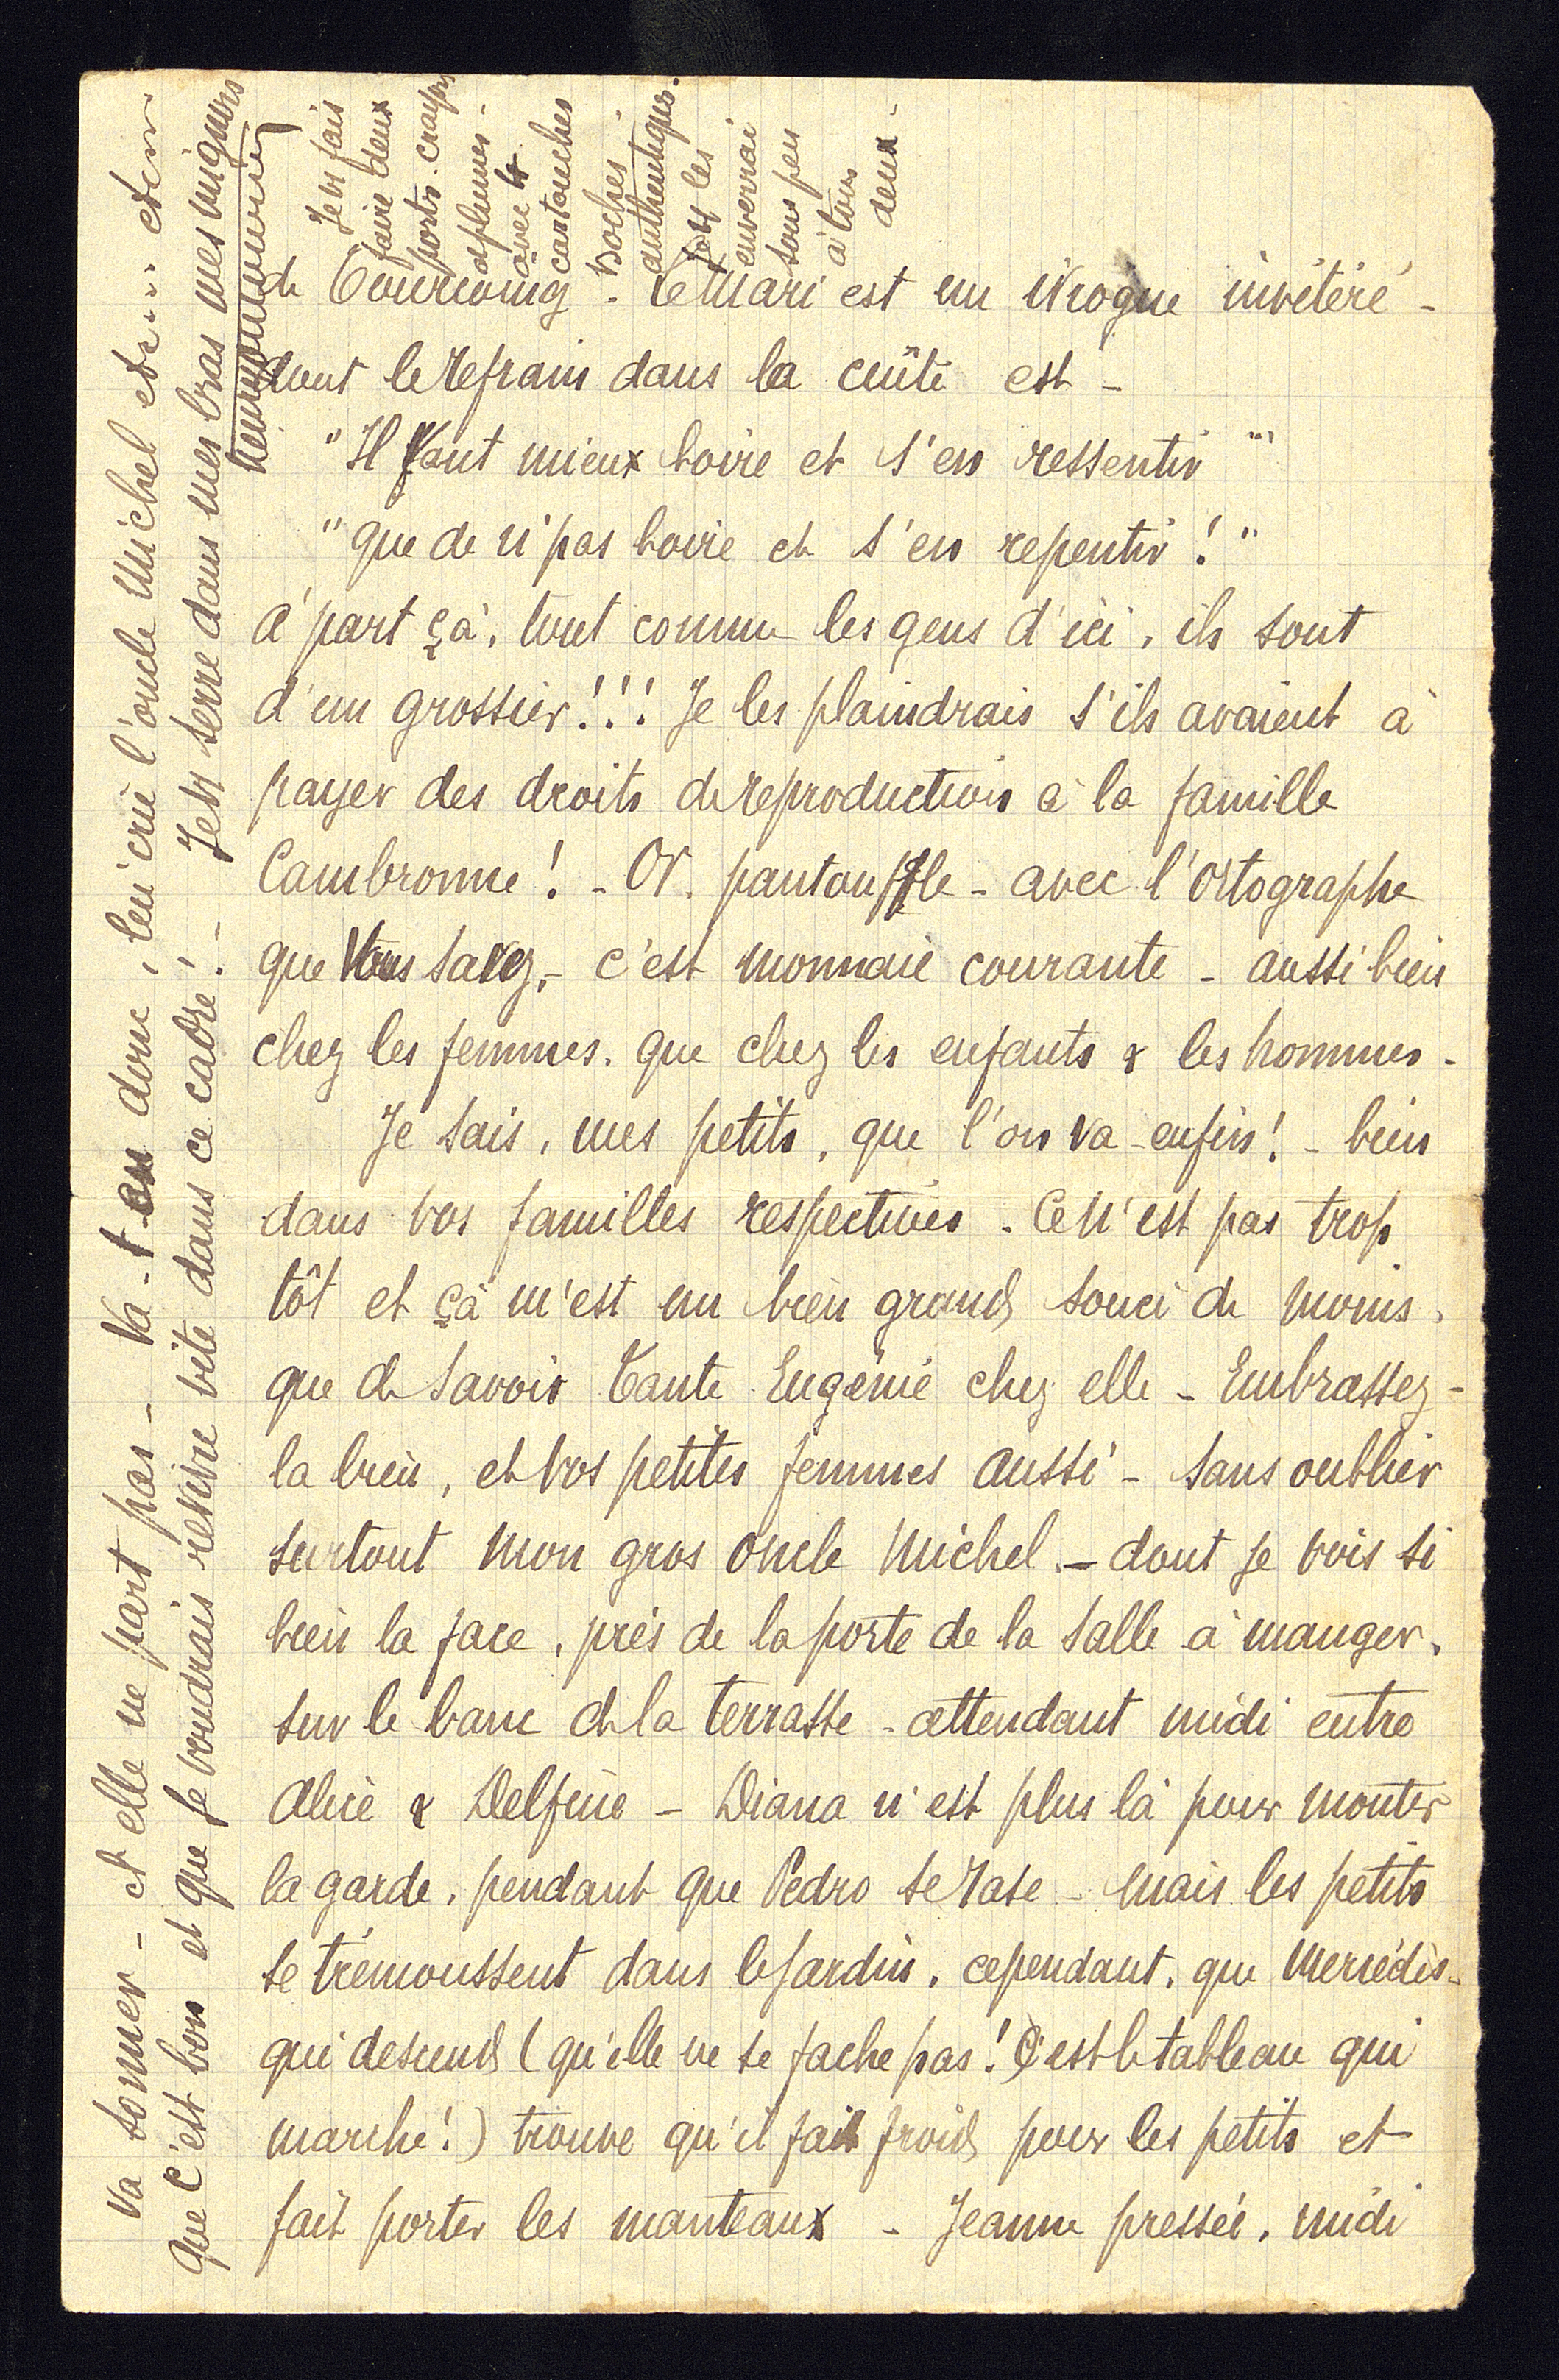 de Tourcoing - Le Mari est un ivrogne invétéré -
dont le refrain dans la cuite est -
"Il Vaut mieux boire et s'en ressentir"
"que de n'pas boire et s'en repentir !"
à part çà, tout comme les gens d'ici, ils sont
d'un grossier !!! Je les plaindrais s'ils avaient à
payer des droits de reproduction à la famille
Cambronne ! - Or. pantouffle - avec l'ortographe
que Vous savez, - c'est monnaie courante - aussi bien
chez les femmes. que chez les enfants & les hommes -
Je sais, mes petits, que l'on va - enfin ! - bien
dans vos familles respectives. Ce n'est pas trop
tôt et çà m'est un bien grand souci de moins,
que de savoir Tante Eugénie chez elle - Embrassez-
la bien, et vos petites femmes aussi - sans oublier
surtout mon gros oncle Michel - dont je vois si
bien la face, près de la porte de la salle à manger,
sur le banc de la terrasse - attendant midi entre
Alice & Delfine - Diana n'est plus là pour monter
la garde, pendant que Pedro se rase - Mais les petits
se trémoussent dans le jardin, cependant, que Mercédès -
qui descend (qu'elle ne se fache pas ! C'est le tableau qui
marche !) trouve qu'il fait froid pour les petits et
fait porter les manteaux - Jeanne pressée, midi
va sonner - et elle ne part pas - Va-t-en donc, lui crie l'oncle Michel etc... etc...
que c'est bon et que je voudrais revivre vite dans ce cadre ! - Je vs serre dans mes bras mes mignons
Je vs fais
faire deux
porte-crayons
& plumes -
avec
cartouches
boches
authentiques.
Je vs les
enverrai
sous peu
à tous
deux -